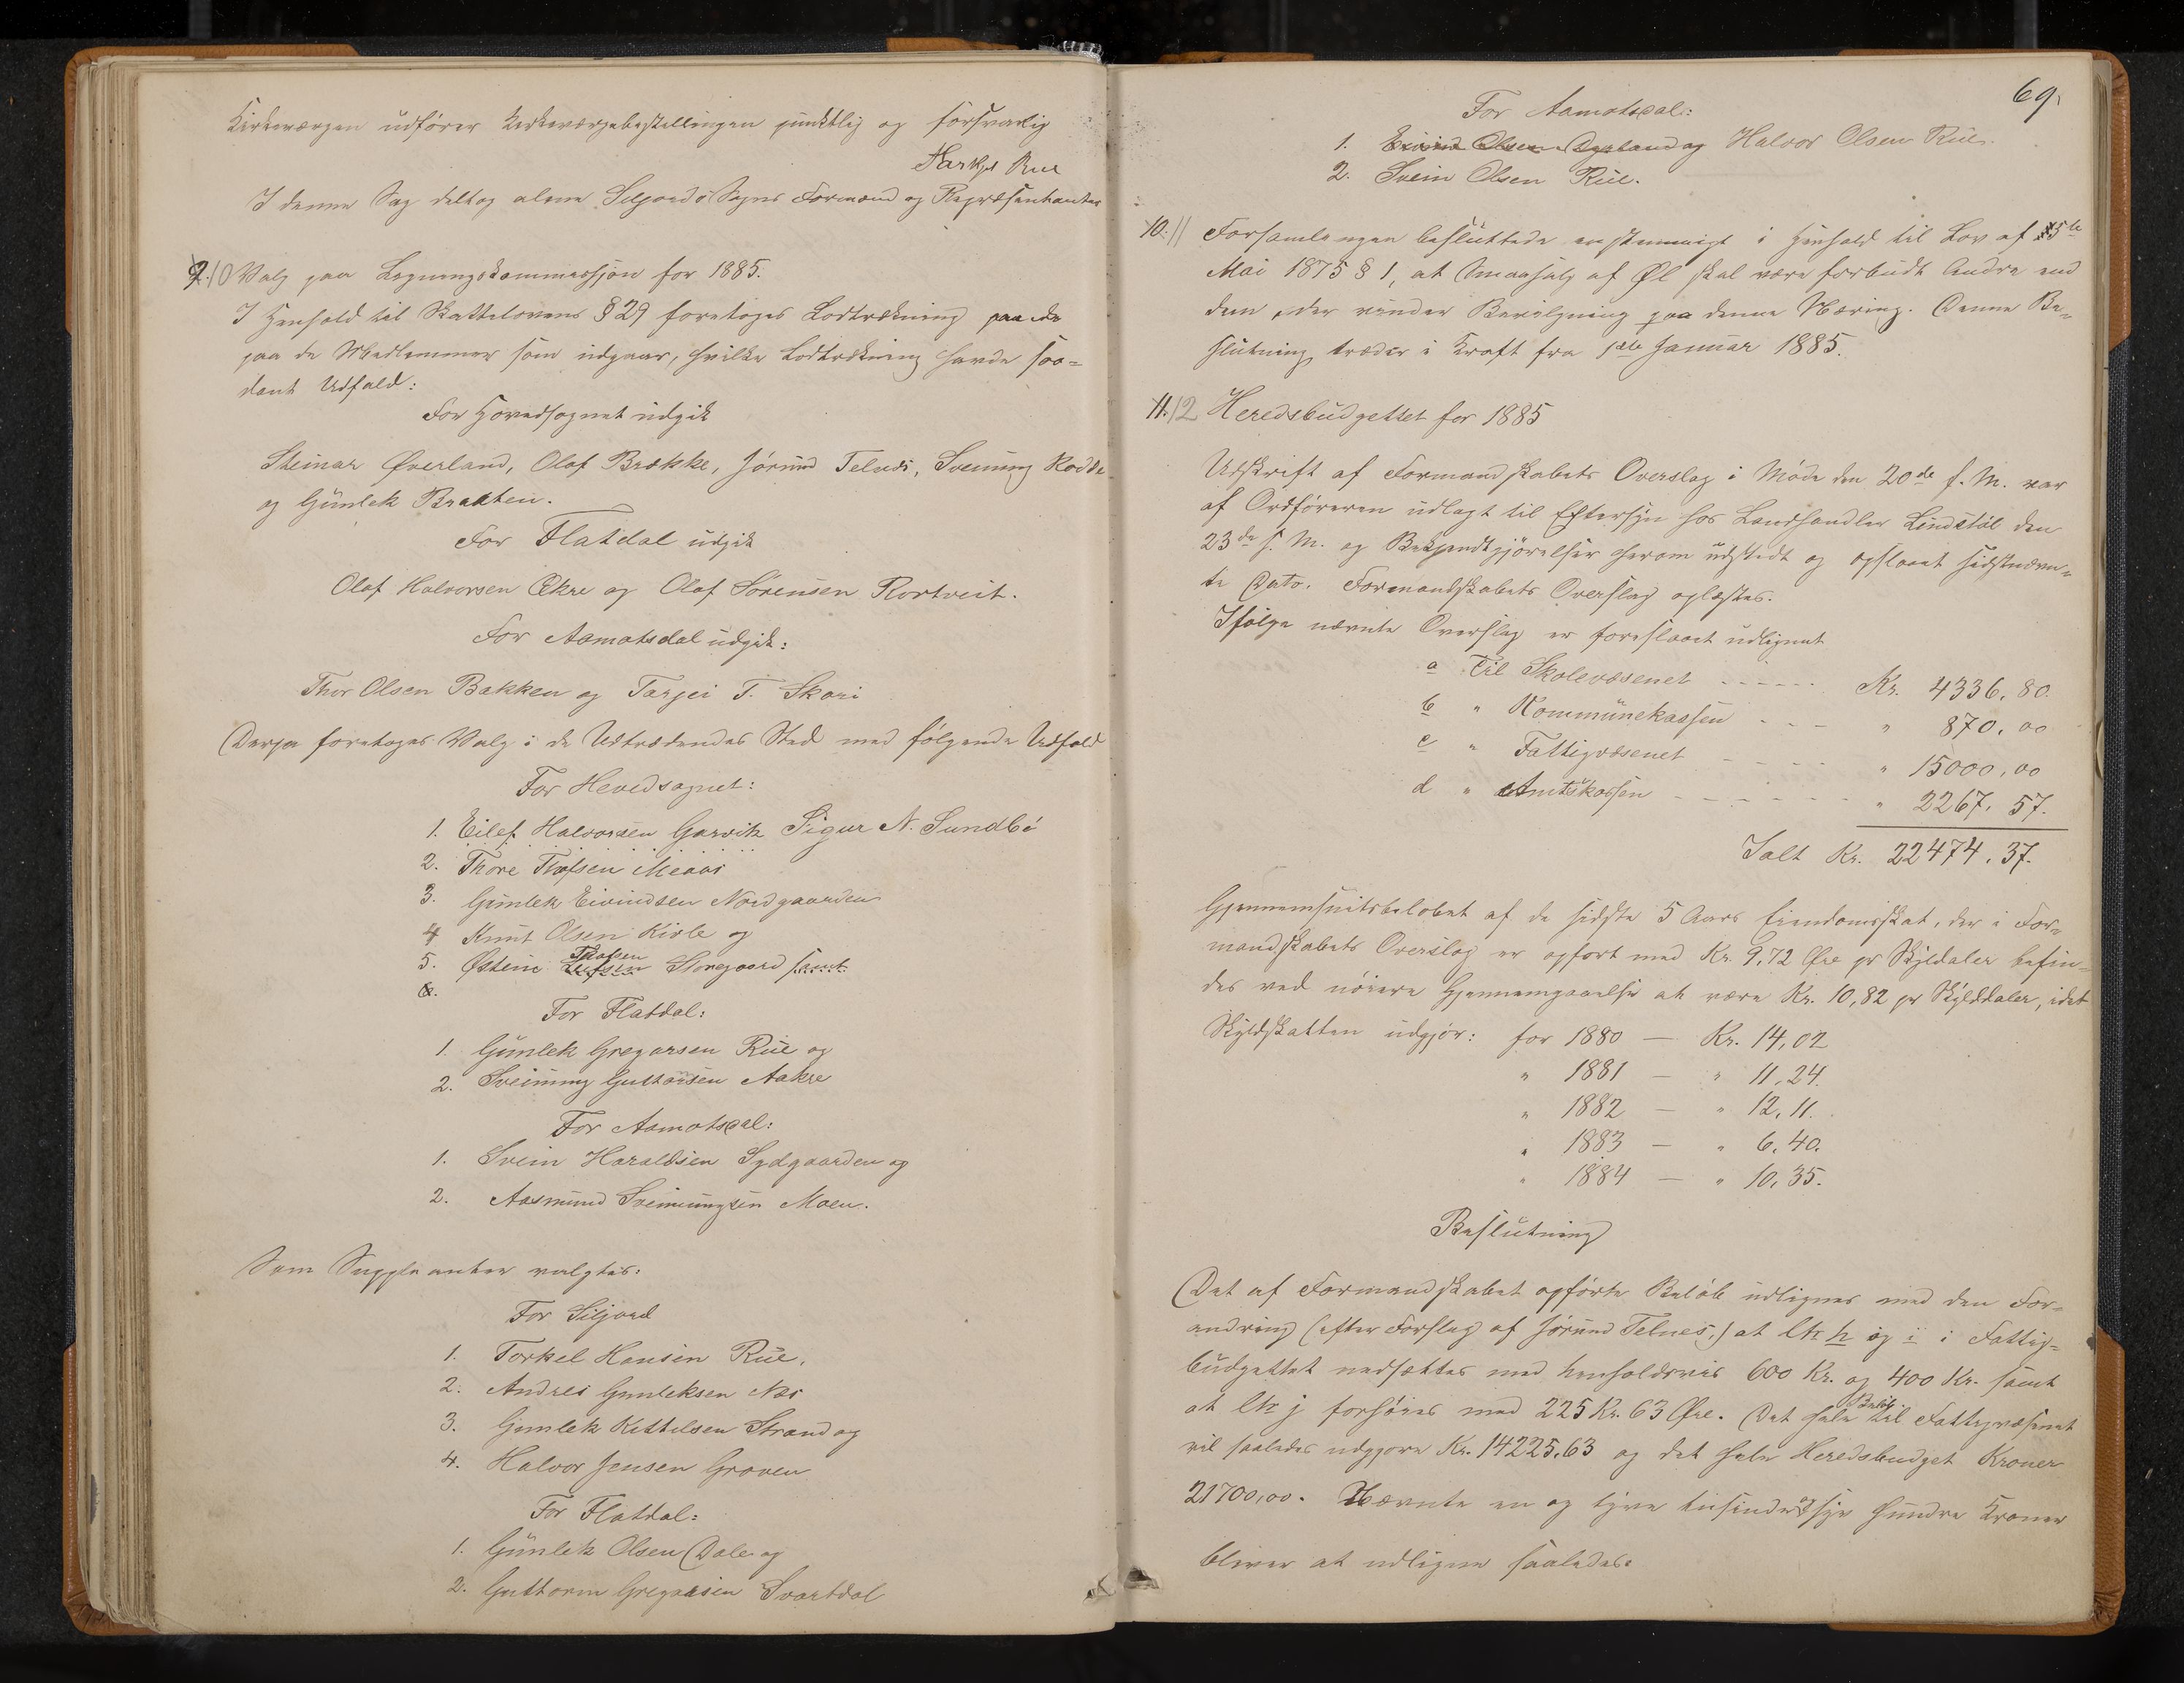 Kirkeværgen udfører Kirkeværgebestillingen punktlig og forsvarlig
Rue
I denne Sag deltog alene Seljords Sogns Formænd og Repræsentanter
9. 10 Valg paa Ligningskommissjon for 1885.
I Henhold til Skattelovens § 29 foretoges Lodtrækning paa de
paa de Medlemmer som udgaar, hvilke Lodtrækning havde saa-
dant Udfald:
For Hovedsognet udgik
Steinar Øverland, Olaf Brække, Jórund Telnes, Svenung Rodde
og Gunlek Bratten.
For Flatdal udgik
Olaf Halvorsen Ækre og Olaf Sørensen Rortveit.
For Aamotsdal udgik:
Thor Olsen Bakken og Tarjei T. Skori
Derpa foretoges Valg i de Udtrædendes Sted med følgende Udfald
For Hovedsognet:
1. Eilef Halvorsen Garvik Sigur N. Sundbö
2. Thore Meaas
3. Gunlek Eivindsen Nordgaarden
4 Knut Olsen Kivle og
5. Østein Storegaard samt
6.
For Flatdal:
1. Gunlek Gregarsen Rue og
2. Sveinung Guttorsen Aakre
For Aamotsdal:
1. Svein Haraldsen Sydgaarden og
2. Aasmund Sveinungsen Moen.
Som Suppleanter valgtes:
For Siljord
1. Torkel Hansen Rue,
2. Andres Gunleksen Næs
3. Gunlek Kittelsen Strand og
4. Halvor Jensen Groven
For Flatdal:
1. Gunlek Olsen Dale og
2. Guttorm Gregarsen Svartdal
69.
For Aamotsdal:
1. Eivind Olsen og Halvor Olsen Rue.
2. Svein Olsen Rue.
10. 11 Forsamlingen besluttede enstemmigt i Henhold til Lov af
Mai 1875 § 1, at Smaasalg af Øl skal være forbudt Andre end
dem, der vinder Bevilgning paa denne Næring. Denne Be-
slutning træder i Kraft fra 1ste Januar 1885.
11. 12 Heredsbudgettet for 1885
Udskrift af Formandskabets Overslag i Møde den 20de f. M. var
af Ordføreren udlagt til Eftersyn hos Landhandler Lindstøl den
23de s. M. og Bekjendtgjørelser herom udstedt og opslaaet sidstnævn-
te Dato. Formandskabets Overslag oplæstes.
Ifølge nævnte Overslag er foreslaaet udlignet
a Til Skolevæsenet - - - - - Kr. 4336,80.
b " Kommunekassen - - - " 870,00
c " Fattigvæsenet - - - - " 15000,00
d " Amtskassen - - - - - - " 2267,57.
Ialt Kr. 22474,37.
Gjennemsnitsbeløbet af de sidste 5 Aars Eiendomsskat, der i For-
mandskabets Overslag er opført med Kr. 9,72 Øre pr Skylddaler befin-
des ved nøiere Gjennemgaaelse at være Kr. 10,82 pr Skylddaler, idet
Skyldskatten udgjør: for 1880 — Kr. 14,02
" 1881 — " 11,24.
" 1882 — " 12,11.
" 1883 — " 6,40.
" 1884 — " 10,35.
Beslutning
Det af Formandskabet opførte Beløb udlignes med den For-
andring (efter Forslag af Jórund Telnes,) at Ltr h og i i Fattig-
budgettet nedsættes med henholdsvis 600 Kr. og 400 Kr. samt
at Ltr j forhøies med 225 Kr. 63 Øre. Det hele Beløb til Fattigvæsenet
vil saaledes udgjøre Kr. 14225,63 og det hele Heredsbudget Kroner
21700,00. Nævnte en og tyve tusinde og syv hundre Kroner
bliver at udligne saaledes: